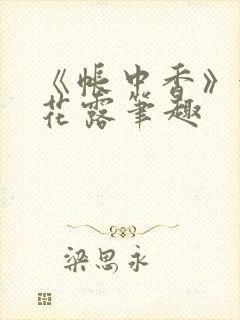 《帐中香》
花露笔趣
梁思永